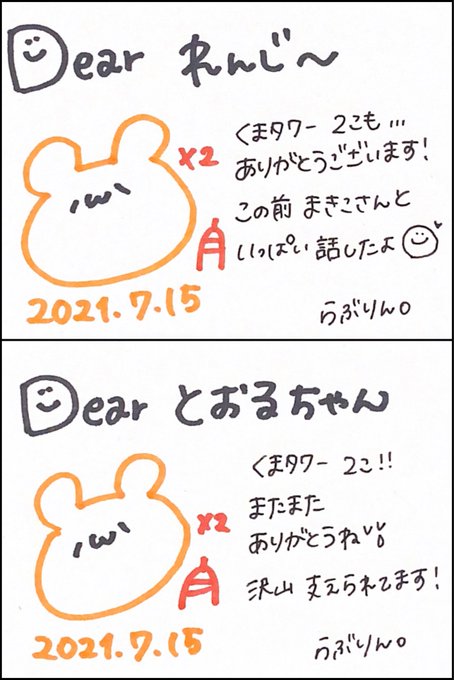 Dear れんじ～
くまタワー 2こも…
ありがとうございます!
×2
この前 まきこさんと
いっぱい 話したよ
2021.7.15
らぶりん。
Dear とおるちゃん
くまタワー 2こ!!
またまた
×2
ありがとうね!!
沢山 支えられてます!
2021.7.15
らぶりん。